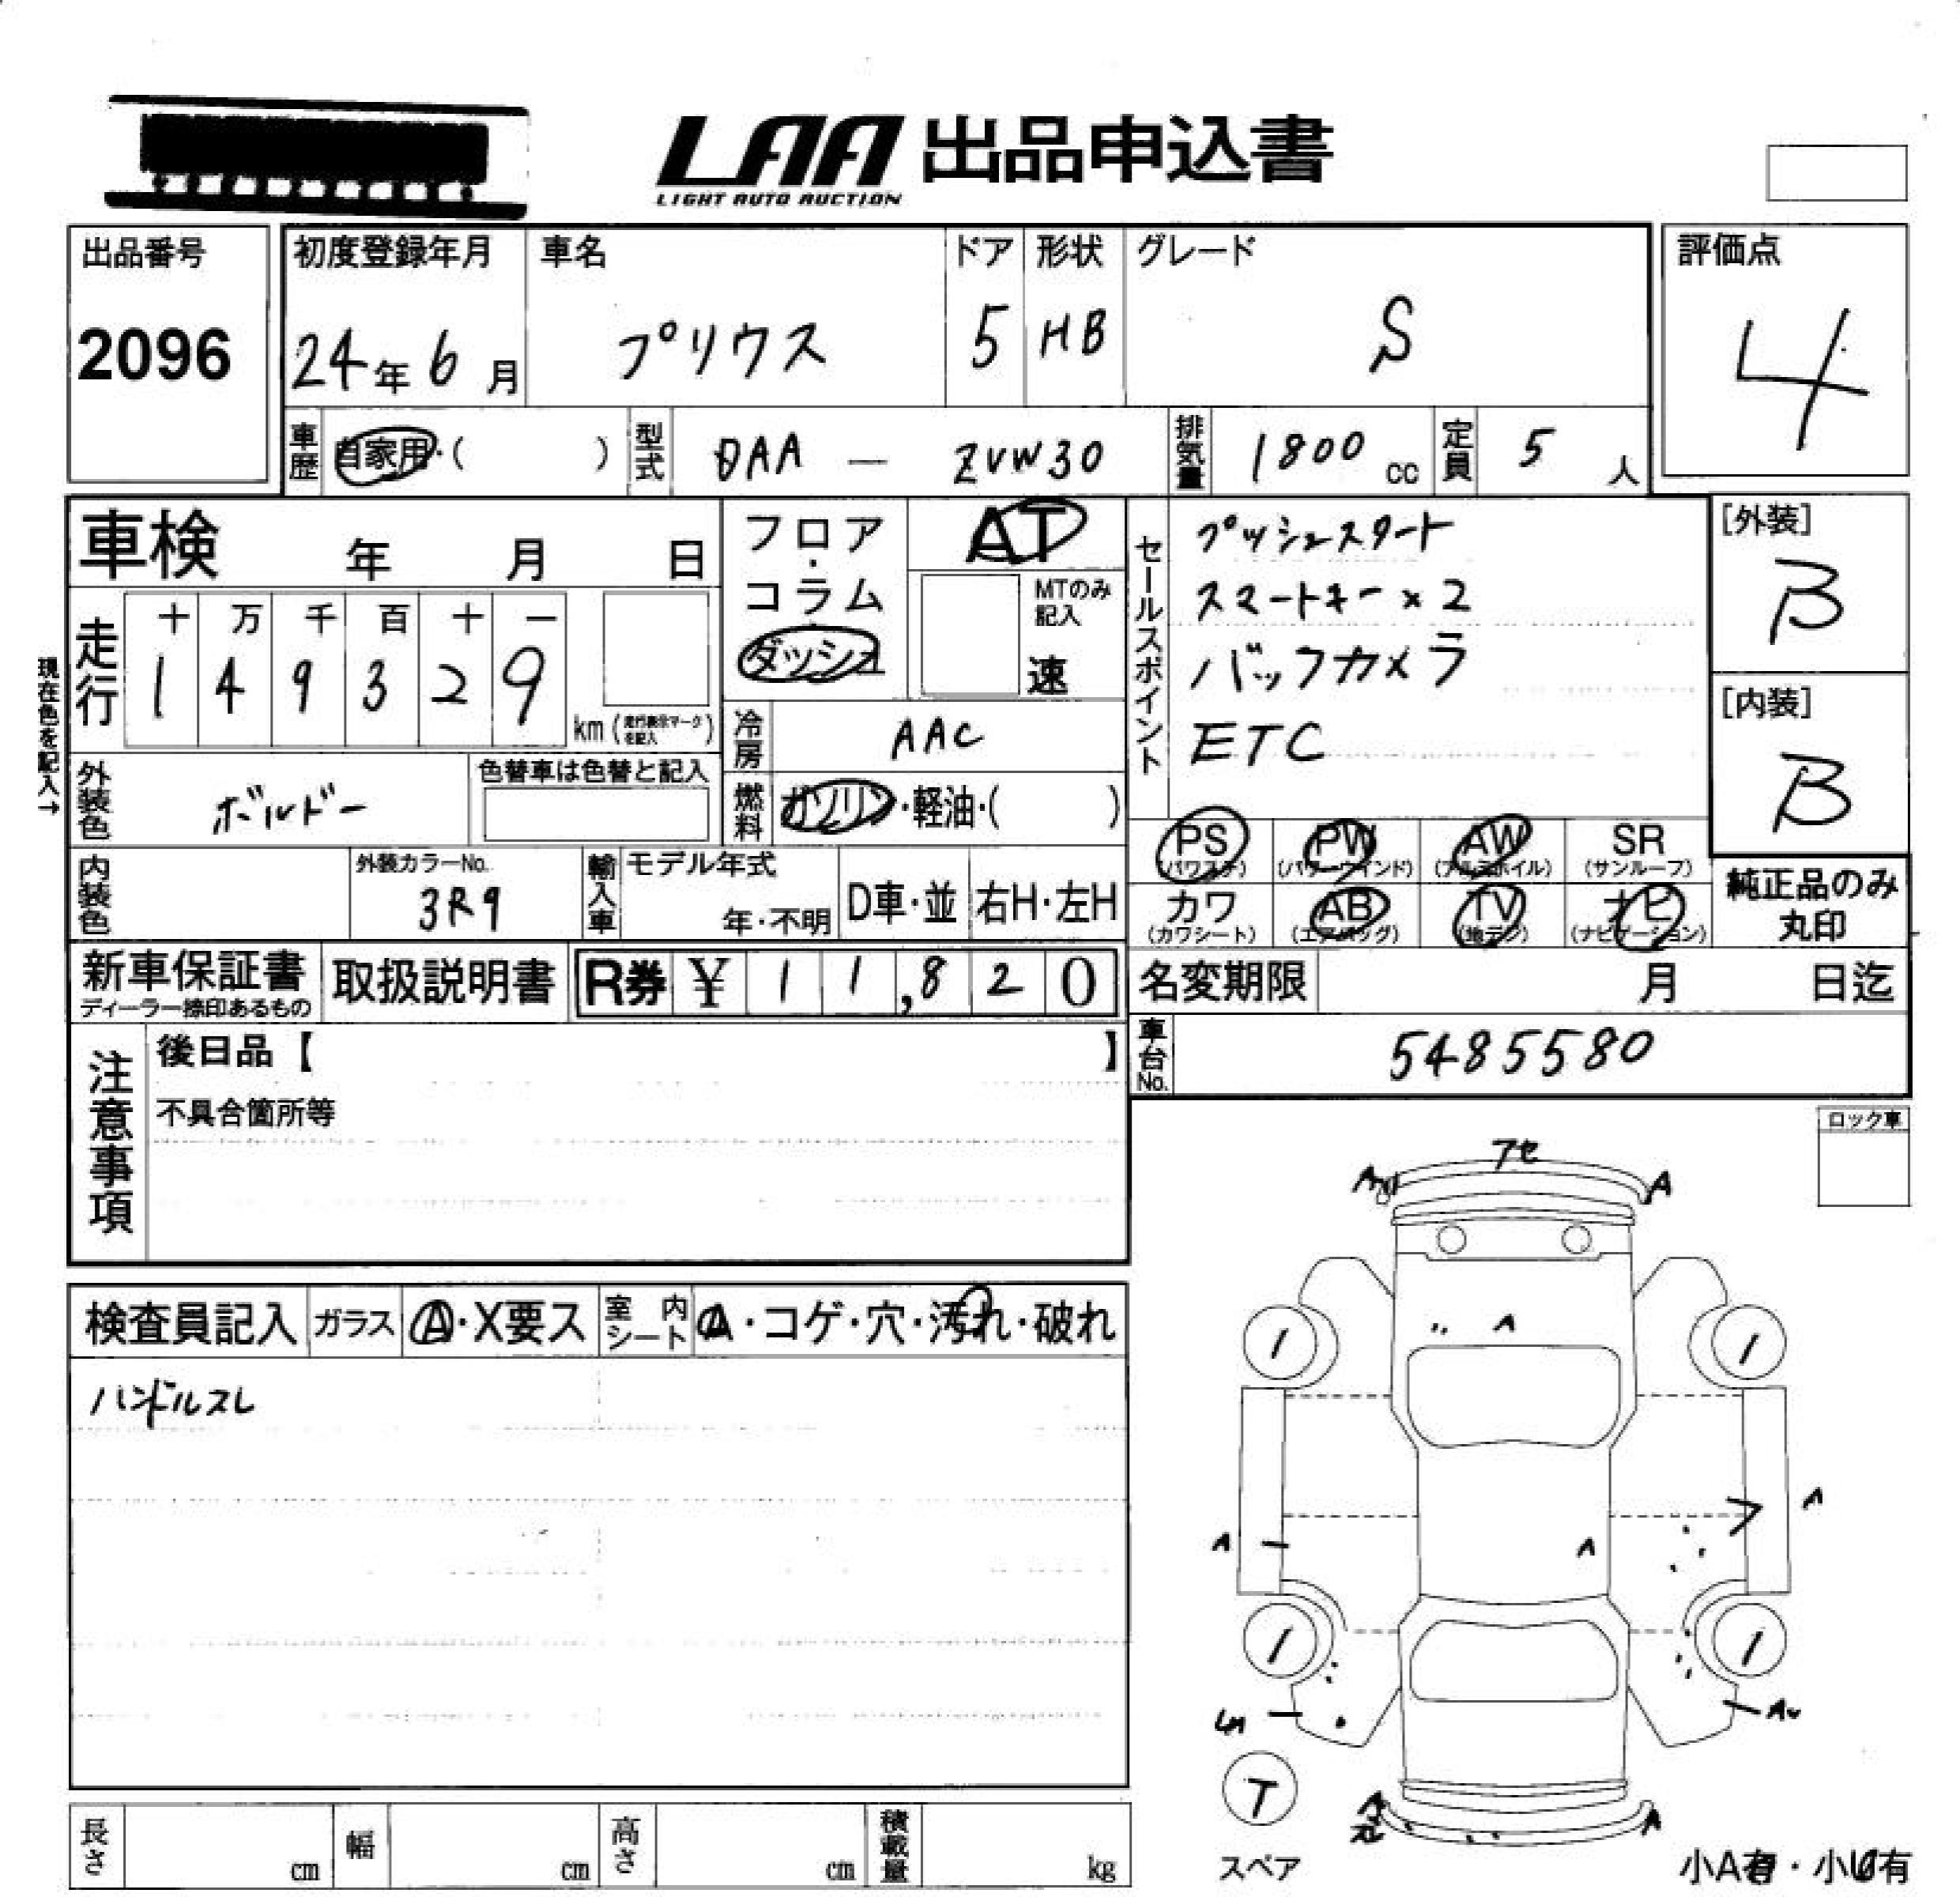 LAA 出品申込書
LIGHT AUTO AUCTION
出品番号
2096
初度登録年月
24年6月
車名
プリウス
ドア
5
形状
HB
グレード
S
評価点
4
車歴
自家用・( )
型式
DAA — ZVW30
排気量
1800 cc
定員
5 人
車検 年 月 日
フロア・コラム
ダッシュ
AT
MTのみ記入
速
セールスポイント
プッシュスタート
スマートキー×2
バックカメラ
ETC
[外装]
B
[内装]
B
現在色を記入→
走行
十 万 千 百 十 一
1 4 9 3 2 9
km (走行表示マークを記入)
冷房
AAC
外装色
ボルドー
色替車は色替と記入
燃料
ガソリン・軽油・( )
PS (パワステ)
PW (パワーウィンド)
AW (アルミホイル)
SR (サンルーフ)
カワ (カワシート)
AB (エアバッグ)
TV (地デジ)
ナビ (ナビゲーション)
純正品のみ
丸印
内装色
外装カラーNo.
3R9
輸入車
モデル年式
年・不明
D車・並
右H・左H
新車保証書
ディーラー捺印あるもの
取扱説明書
R券 ¥ 1 1,8 2 0
名変期限 月 日迄
車台No.
5485580
注意事項
後日品【 】
不具合箇所等
ロック車
検査員記入
ガラス
A・X要ス
室内シート
A・コゲ・穴・汚れ・破れ
ハンドルスレ
アセ
A
A
A
A
A
A
T
スペア
A
小A有・小U有
長さ cm
幅 cm
高さ cm
積載量 kg